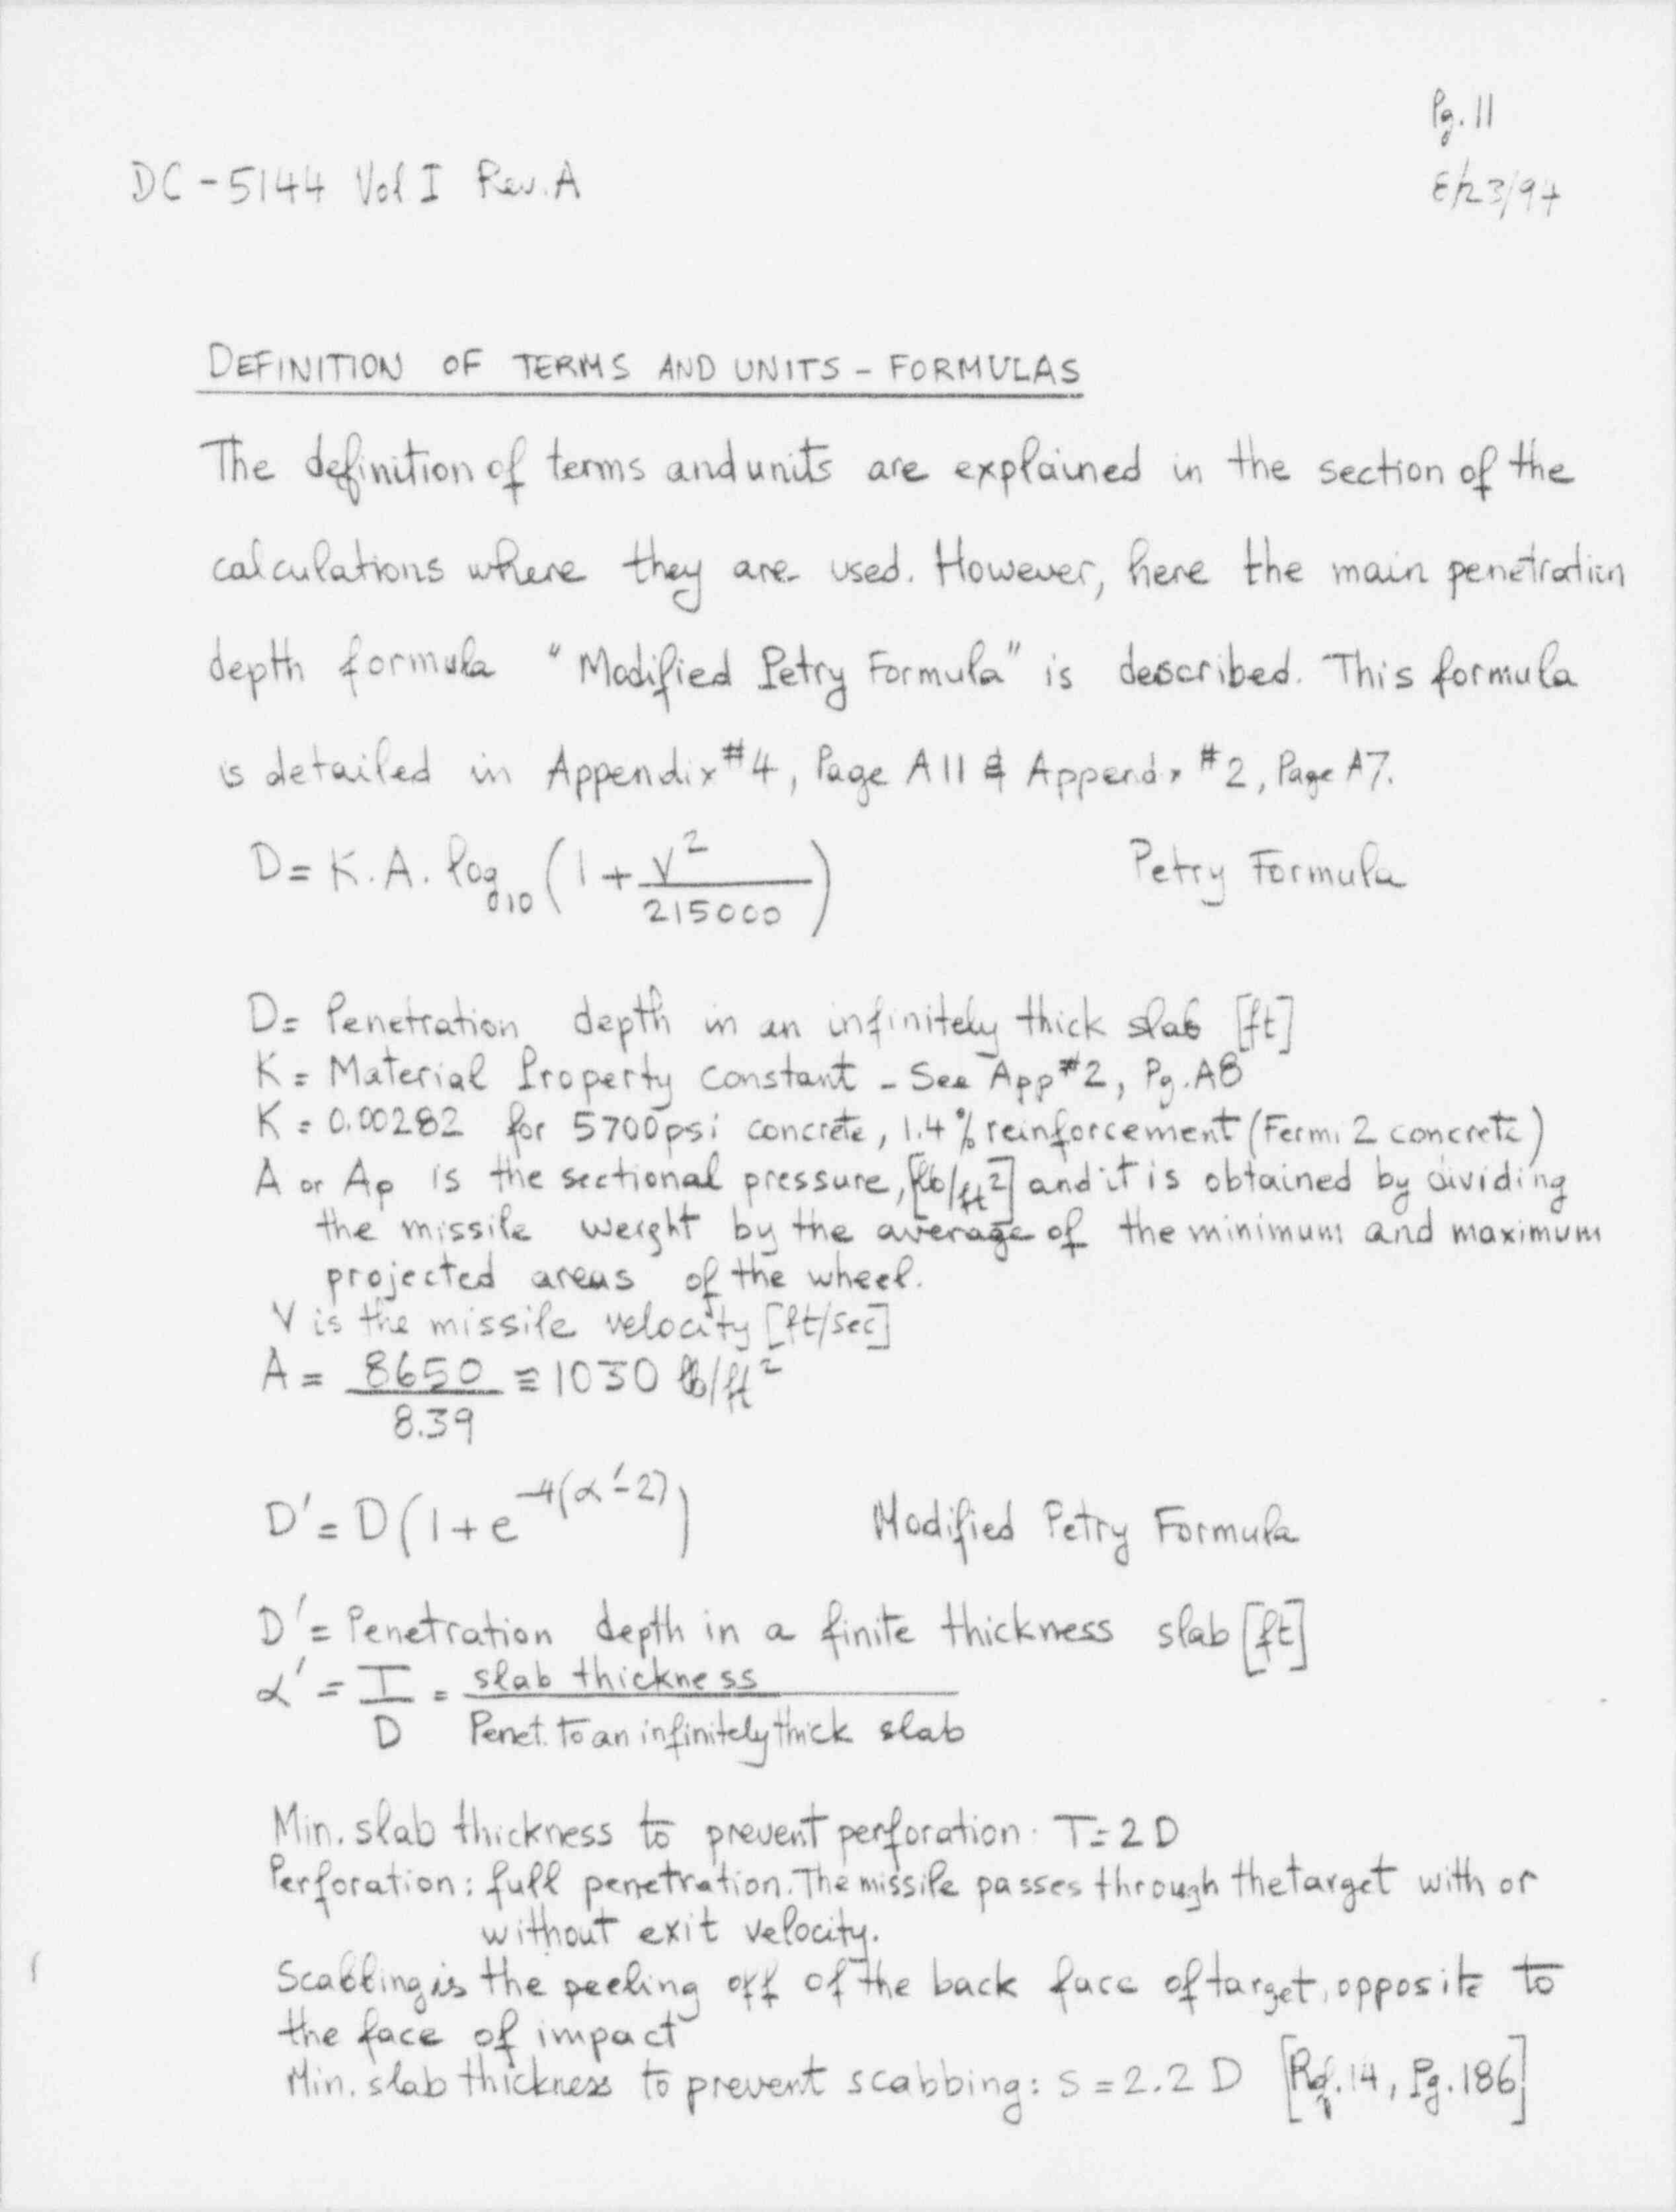 Pg. 11
DC-5144 Vol I Rev. A
8/23/94
DEFINITION OF TERMS AND UNITS - FORMULAS
The definition of terms and units are explained in the section of the
calculations where they are used. However, here the main penetration
depth formula "Modified Petry Formula" is described. This formula
is detailed in Appendix #4, Page A11 & Appendix #2, Page A7.
D = K.A. log10 (1 + V²/215000) Petry Formula
D = Penetration depth in an infinitely thick slab [ft]
K = Material Property constant - See App #2, Pg. A8
K = 0.00282 for 5700psi concrete, 1.4% reinforcement (Fermi 2 concrete)
A or Ap is the sectional pressure, [lb/ft²] and it is obtained by dividing
the missile weight by the average of the minimum and maximum
projected areas of the wheel.
V is the missile velocity [ft/sec]
A = 8650/8.39 ≅ 1030 lb/ft²
D' = D(1+e^-4(α'-2)) Modified Petry Formula
D' = Penetration depth in a finite thickness slab [ft]
α' = T/D = slab thickness / Penet. to an infinitely thick slab
Min. slab thickness to prevent perforation: T=2D
Perforation: full penetration. The missile passes through the target with or
without exit velocity.
Scabbing is the peeling off of the back face of target, opposite to
the face of impact
Min. slab thickness to prevent scabbing: S = 2.2 D [Ref. 14, Pg. 186]